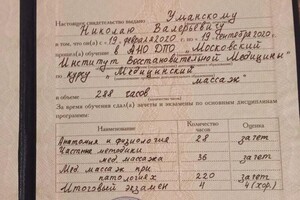 Настоящее свидетельство выдано Уманскому
Николаю Валерьевичу
в том, что он(а) с «19» февраля 2020 г. по «19» сентября 2020 г.
прошел(а) обучение в АНО ДПО „Московский
Институт Восстановительной Медицины"
по курсу „Медицинский
массаж"
в объеме 288 часов
За время обучения сдал(а) зачеты и экзамены по основным дисциплинам
программы:
Наименование Количество часов Оценка
Анатомия и физиология 28 зачет
Частные методики
мед. массажа 36 зачет
Мед. массаж при
патологиях 220 зачет
Итоговый экзамен 4 4 (хор.)